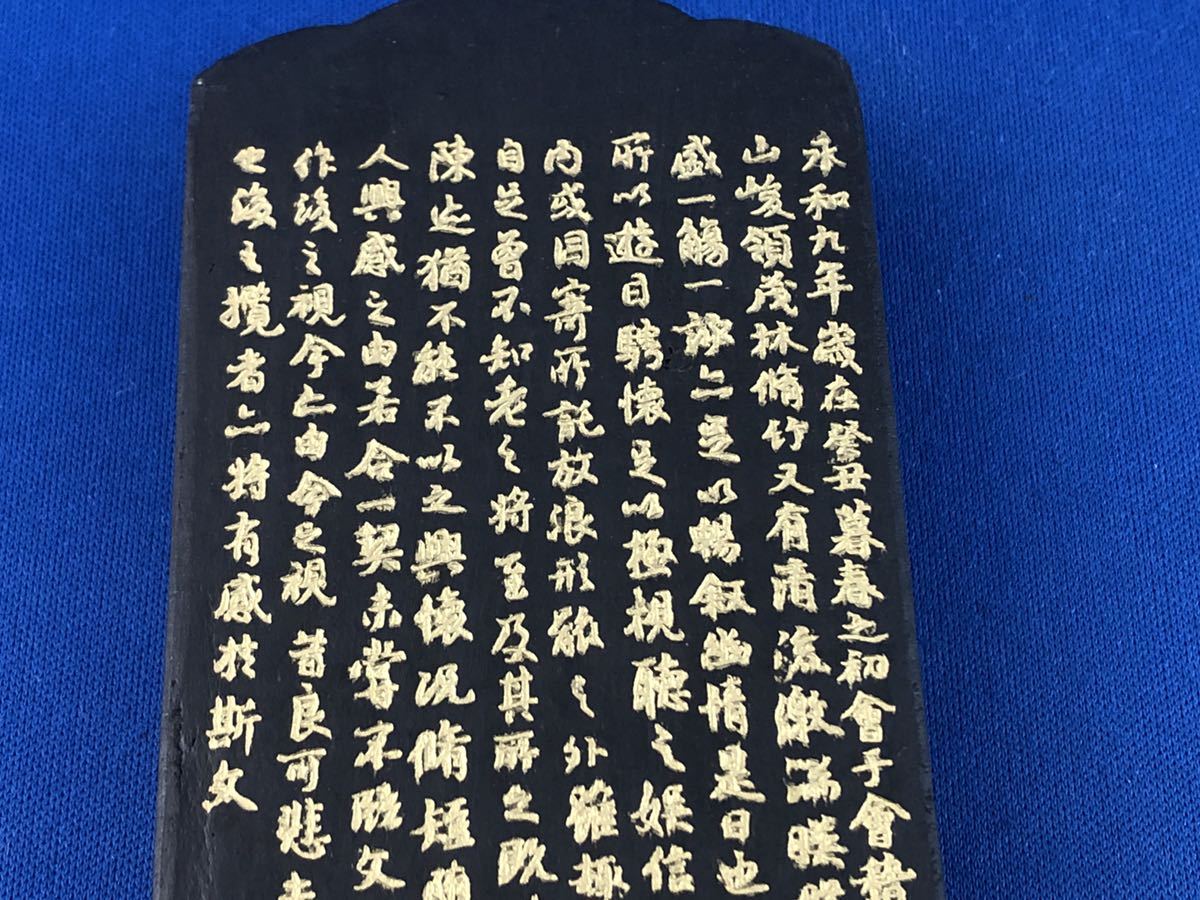 永和九年歲在癸丑暮春之初會于會稽
山峻領茂林脩竹又有清流激湍暎
盛一觴一詠亦足以暢叙幽情是日也
所以遊目騁懷足以極視聽之娛信
內或因寄所託放浪形骸之外雖極
自足曾不知老之將至及其所之既
陳迹猶不能不以之興懷況脩短
人興感之由若合一契未嘗不臨文
作後之視今亦由今之視昔良可悲
也後之攬者亦將有感於斯文